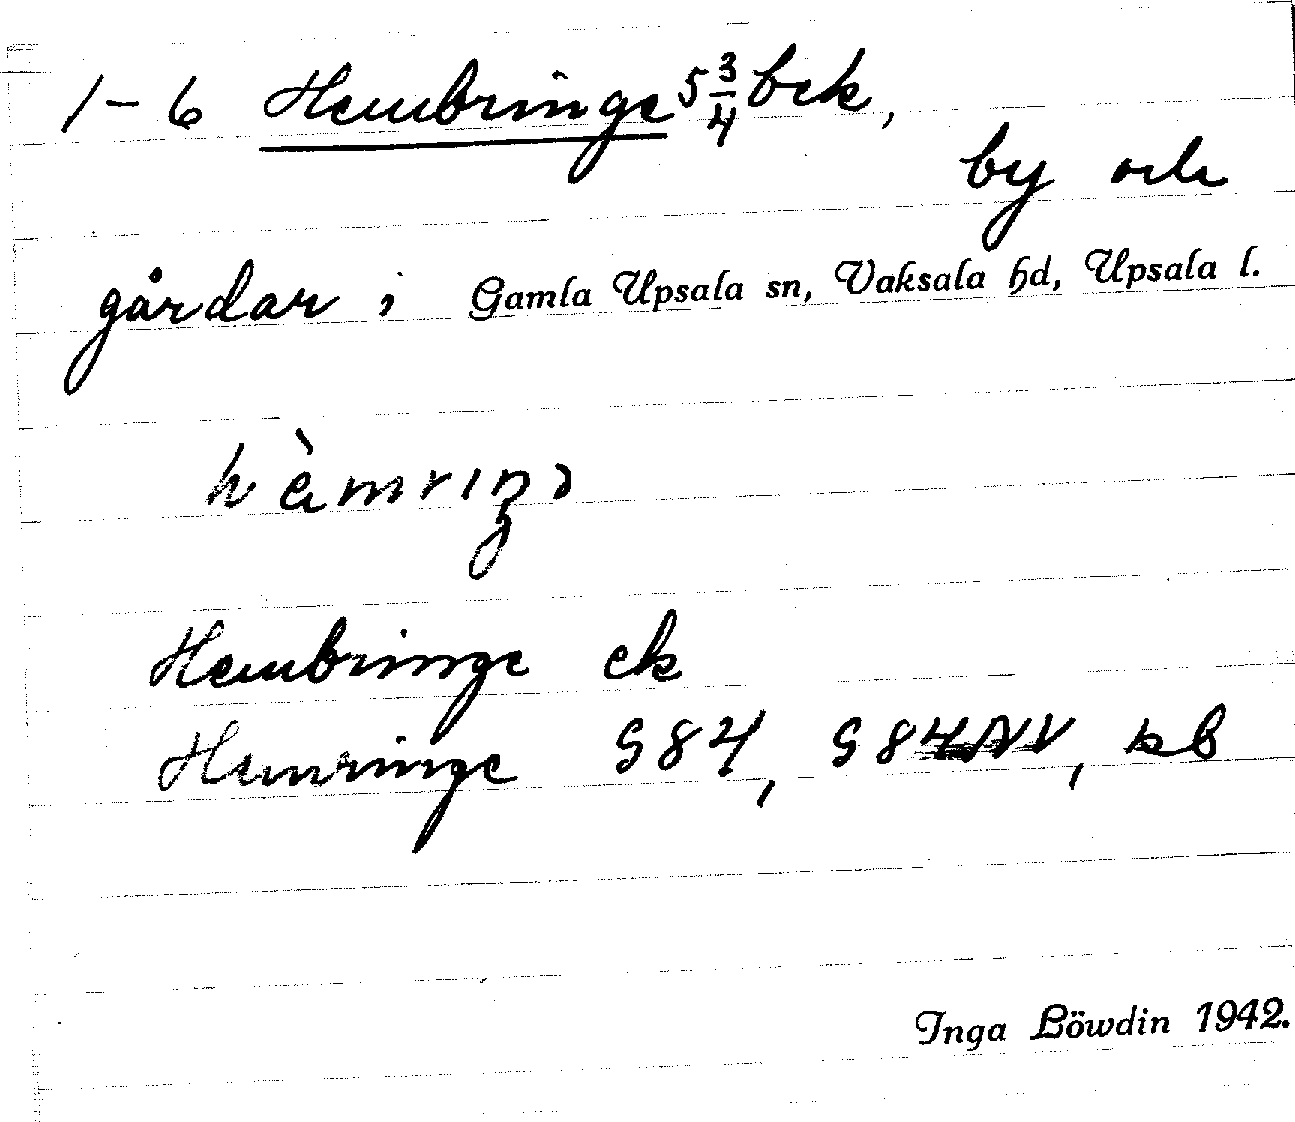 1-6 Hembringe 5 3/4 bek,
by och
gårdar i Gamla Upsala sn, Vaksala hd, Upsala l.
hèmrıŋə
Hembringe ek
Hemringe G 84, G 84 NV, kb
Inga Löwdin 1942.